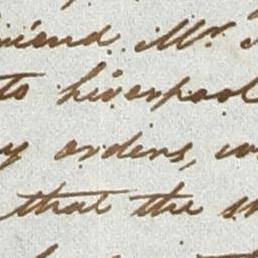 friend Mr.
to Liverpool
orders,
that the